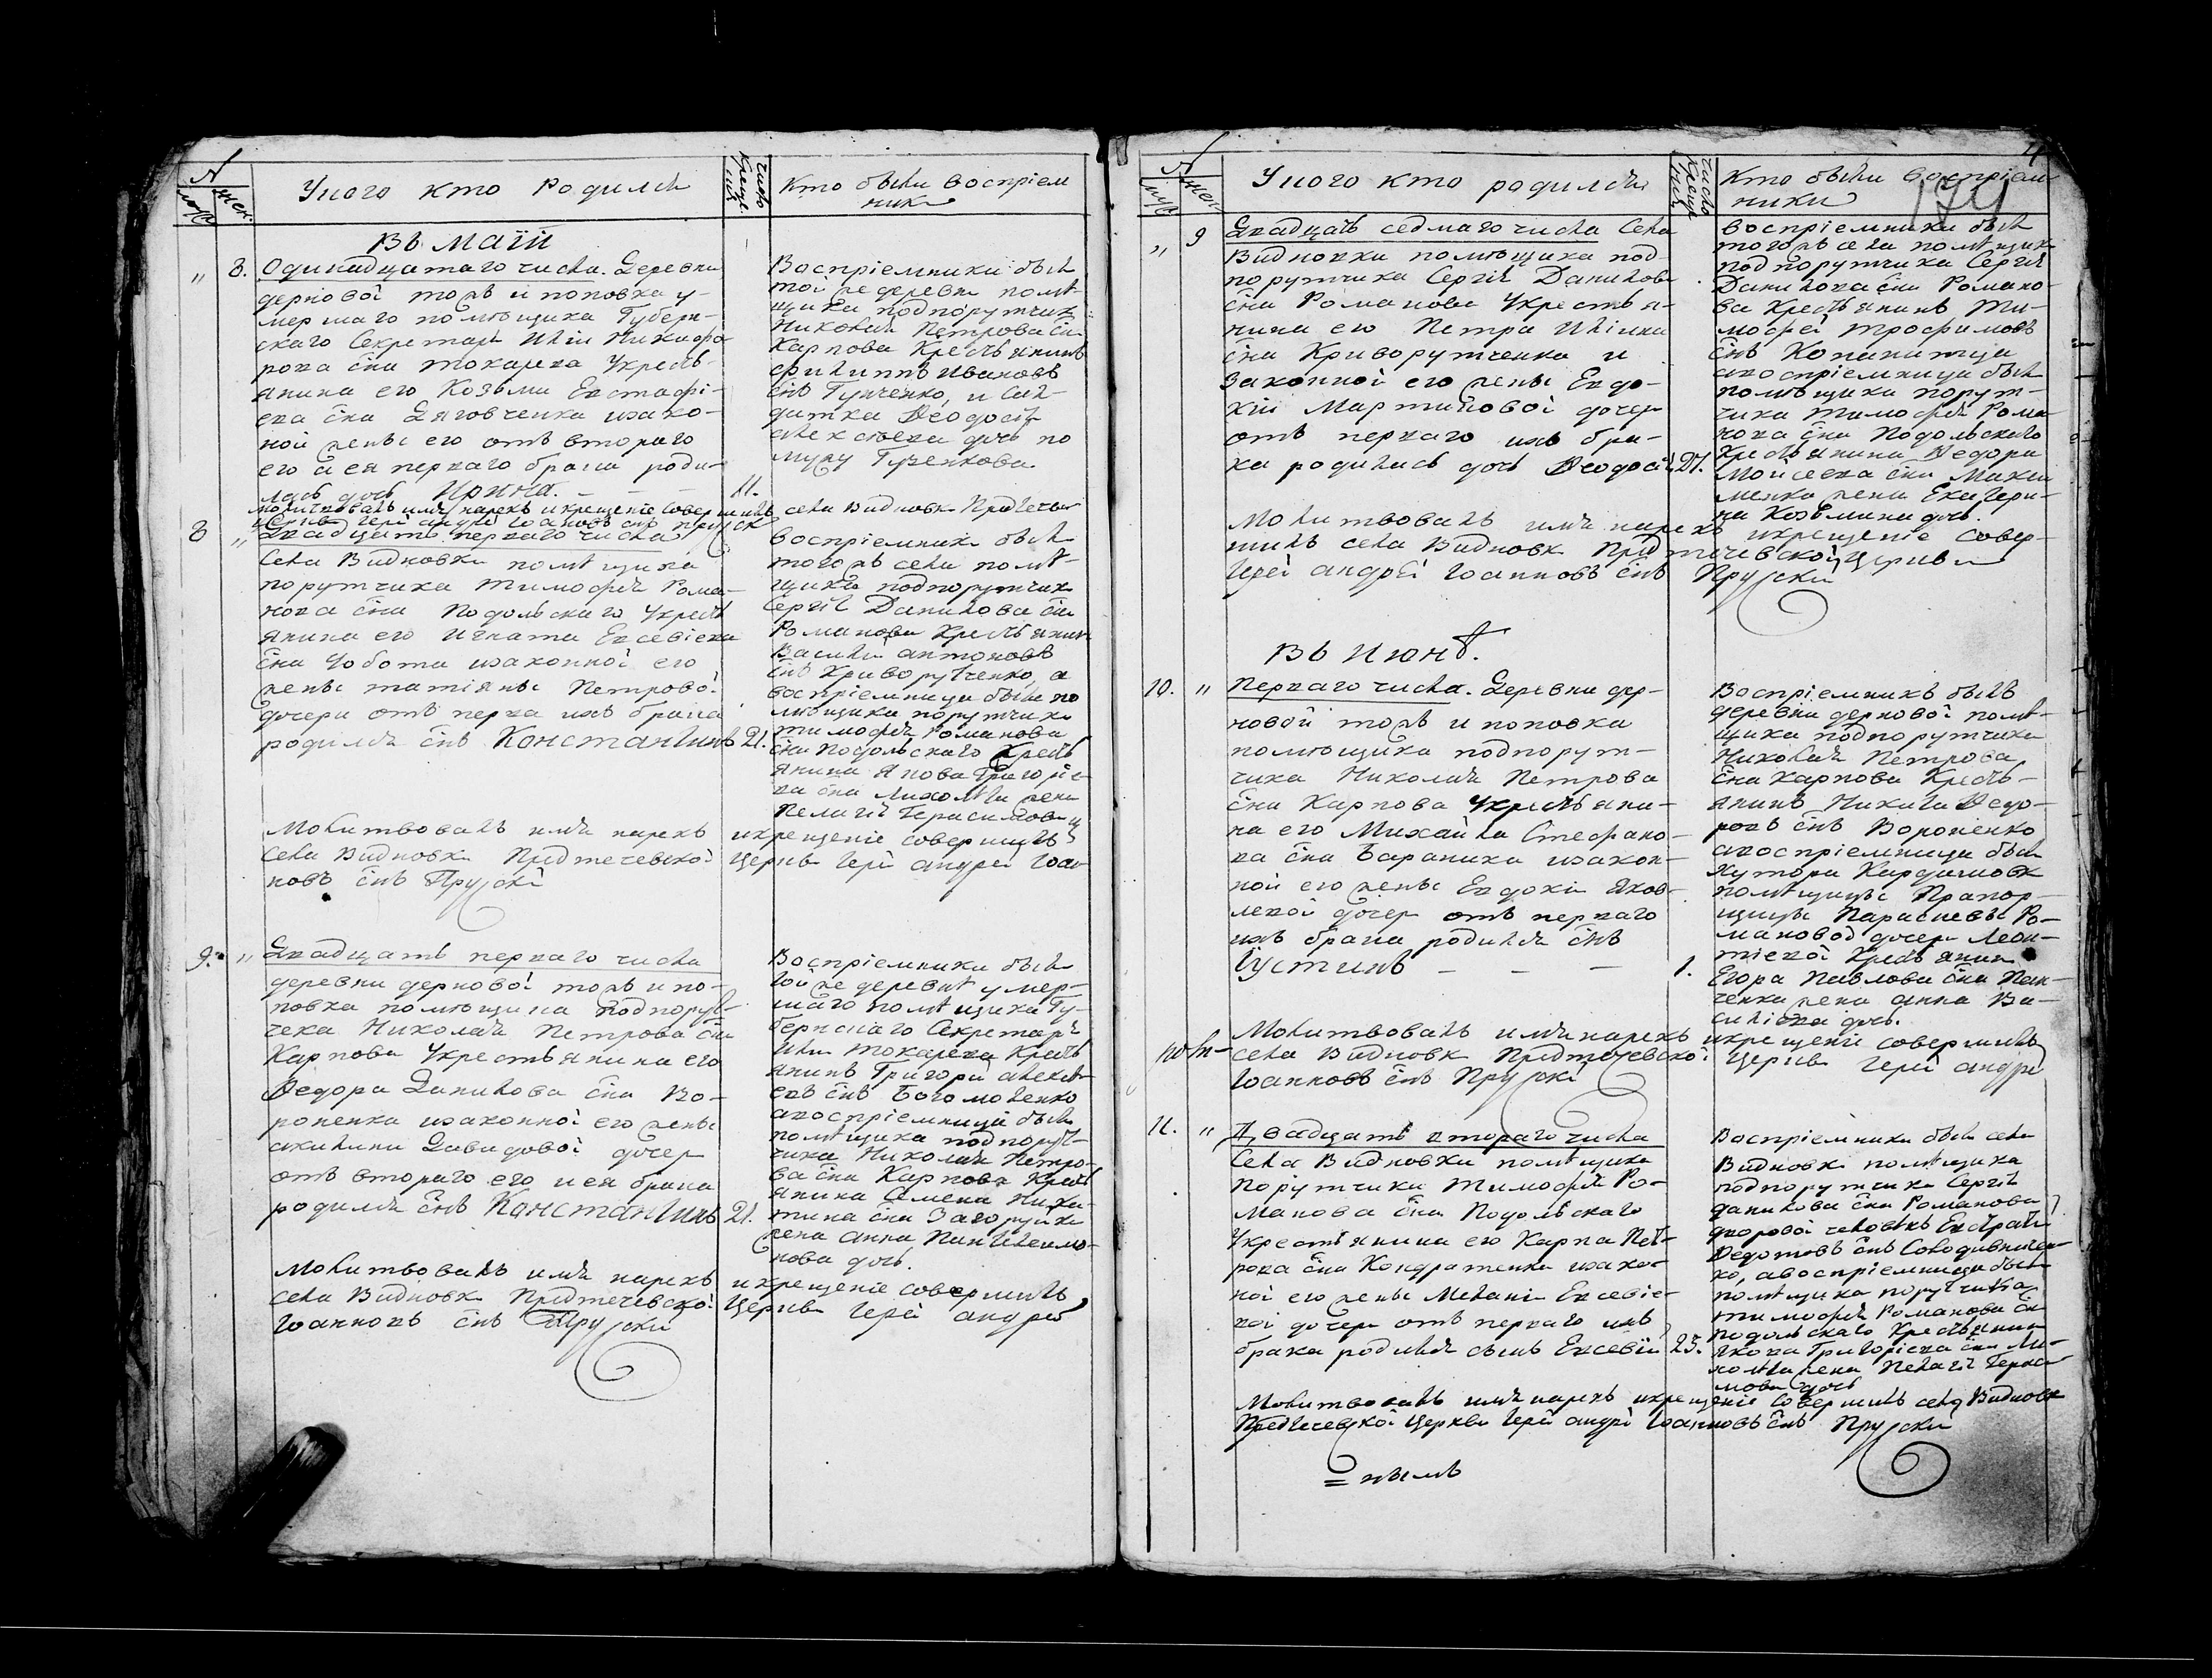 №
муж.
жен.
У кого кто родился
число крещен.
Кто были восприем
ники
Въ маіи
„ 8. Одинадцатаго числа. Деревни
дерновой тожъ и поповка у-
мершаго помѣщика Губерн-
скаго Секретаря Иліи Никифо
рова сна токарева Укресть-
янина его Козьмы Евстафі-
ева сна Дяговченка изако-
ной жены его отъ втораго
его а ея перваго брака роди-
лась дочь Ирина. – – – 11.
Воспріемники были
той же деревни помѣ-
щика подпорутчика
Николая Петрова сна
Карпова Крестьянинъ
филиппъ Ивановъ
снъ Гупченко, и сол-
датка Ѳеодосія
алексѣева дочь по
мужу Гузенкова
молитвовалъ имя нарекъ икрещеніе совершилъ села Видновки Предтечев
церкви Іерей андрей Іоановъ снъ Прускій
8 „ Двадцать перваго числа
Села Видновки помѣщика
порутчика Тимофея Рома-
нова сна Подольскаго Укресть
янина его Игната Евсевіева
сна Чобота изаконной его
жены татіяны Петровой
дочери отъ перва ихъ брака
родился снъ Константинъ 21.
воспріемники были
тогожъ села помѣ-
щика подпорутчика
Сергія Данилова сна
Романова Крестьянин
Василій антоновъ
снъ Криворутченко, а
воспріемница были по
мѣщика порутчика
тимофея Романова
сна Подольскаго Кресть
янина Якова Григоріе-
ва сна жена
Пелагія Герасимова
Молитвовалъ имя нарекъ икрещеніе совершилъ
села Видновки Предтечевской Церкви Іерей андрей Іоан
новъ снъ Прускій
9. „ Двадцать перваго числа
деревни дерновой тожъ и по-
повка помѣщика подпорут-
чека Николая Петрова сна
Карпова Укрестьянина его
Ѳедора Данилова сна Во-
роненка изаконной его жены
акилины Давидовой дочери
отъ втораго его и ея брака
родился снъ Константинъ 21.
Воспріемники были
той же деревнѣ умер-
шаго помѣщика Гу-
бернскаго Секретаря
Иліи токарева Кресть
янинъ Григорій алексѣ-
евъ снъ Богомоленко
авоспріемницей были
помѣщика подпорут-
чика Николая Петро-
ва сна Карпова Кресть
янина Семена Ники-
тина сна Загоруйка
жена анна Пантелеимо-
нова дочь.
Молитвовалъ имя нарекъ икрещеніе совершилъ
села Видновки Предтечевской Церкви Іерей андрей
Іоанновъ снъ Прускій
4
191
№
муж.
жен.
У кого кто родился
число крещен.
Кто были восприем
ники
„ 9 Двадцать седмаго числа Села
Видновки помѣщика под-
порутчика Сергія Данилова
сна Романова Укрестья-
нина его Петра Иліина
сна Криворутченка и
законной его жены Евдо-
кіи Мартиновой дочери
отъ перваго ихъ бра-
ка родилась дочь Ѳеодосія 27.
воспріемники были
тогожъ села помѣщика
подпорутчика Сергія
Данилова сна Романо-
ва Крестьянинъ Ти-
мофей трофимовъ
снъ Копанитца
авоспріемница были
помѣщика порут-
чика Тимофея Рома-
нова сна Подольскаго
Крестьянина Ѳедора
Мойсеева сна
жена Екатери-
на Козьмина дочь.
Молитвовалъ имя нарекъ икрещеніе совер-
шилъ села Видновки Предтечевской Церкви
Іерей андрей Іоанновъ снъ Прускій
Въ Июнѣ.
10. „ Перваго числа. Деревни дер-
новой тожъ и поповка
помѣщика подпорут-
чика Николая Петрова
сна Карпова Укрестьяни-
на его Михайла Стефано-
ва сна Бараника изакон-
ной его жены Евдокіи Яков-
левой дочери отъ перваго
ихъ брака родился снъ
Іустинъ – – – 1.
Воспріемникъ былъ
деревни дерновой помѣ-
щика подпорутчика
Николая Петрова
сна Карпова Кресть-
янинъ Никита Ѳедо-
ровъ снъ Вороненко
авоспріемница были
хутора Кардашовки
помѣщицы Прапор-
щицы Парасцевы Ро-
мановой дочери Леон-
тіевой Крестьянин
Егора Павлова сна Пан-
ченка жена анна Ва-
силіева дочь.
Молитвовалъ имя нарекъ икрещеніе совершилъ
села Видновки Предтечевской Церкви Іерей андрей
Іоанновъ снъ Прускій
11. „ Двадцать втораго числа
Села Видновки помѣщика
Порутчика Тимофея Ро-
манова сна Подольскаго
Укрестьянина его Карпа Пет-
рова сна Кондратенка изако-
ной его жены Меланіи Евсевіе-
вой дочери отъ перваго ихъ
брака родился сынъ Евсевій 23.
Воспріемники были села
Видновки помѣщика
подпорутчика Сергія
данилова сна Романова
дворовой человѣкъ Евстратій
Ѳедотовъ снъ
ко, авоспріемница были
помѣщика порутчика
тимофея Романова сна
подольскаго Крестьянина
Якова Григоріева сна
жена Пелагія Гераси-
мова дочь
Молитвовалъ имя нарекъ икрещеніе совершилъ села Видновки
Предтечевской Церкви Іерей андрей Іоанновъ снъ Прускій